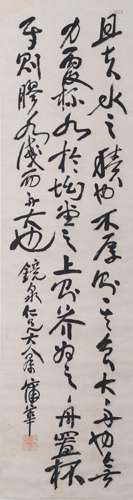 且夫水之積也不厚則其負大舟也無
力覆杯水於坳堂之上則芥為之舟置杯
焉則膠水淺而舟大也 鏡泉仁兄大 蒲華